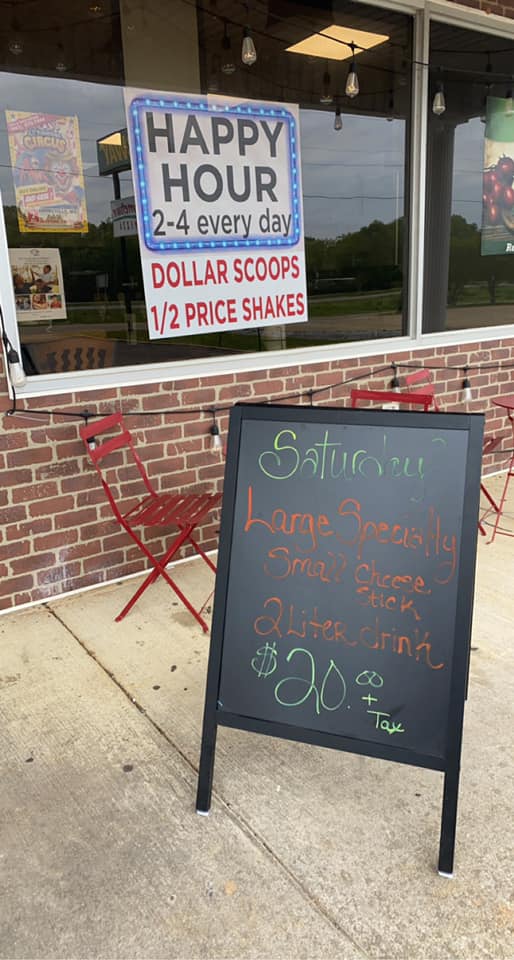 HAPPY
HOUR
2-4 every day
DOLLAR SCOOPS
1/2 PRICE SHAKES
CIRCUS
Saturday
Large Specialty
Small Cheese
Stick
2 Liter drink
$20.00
+
Tax